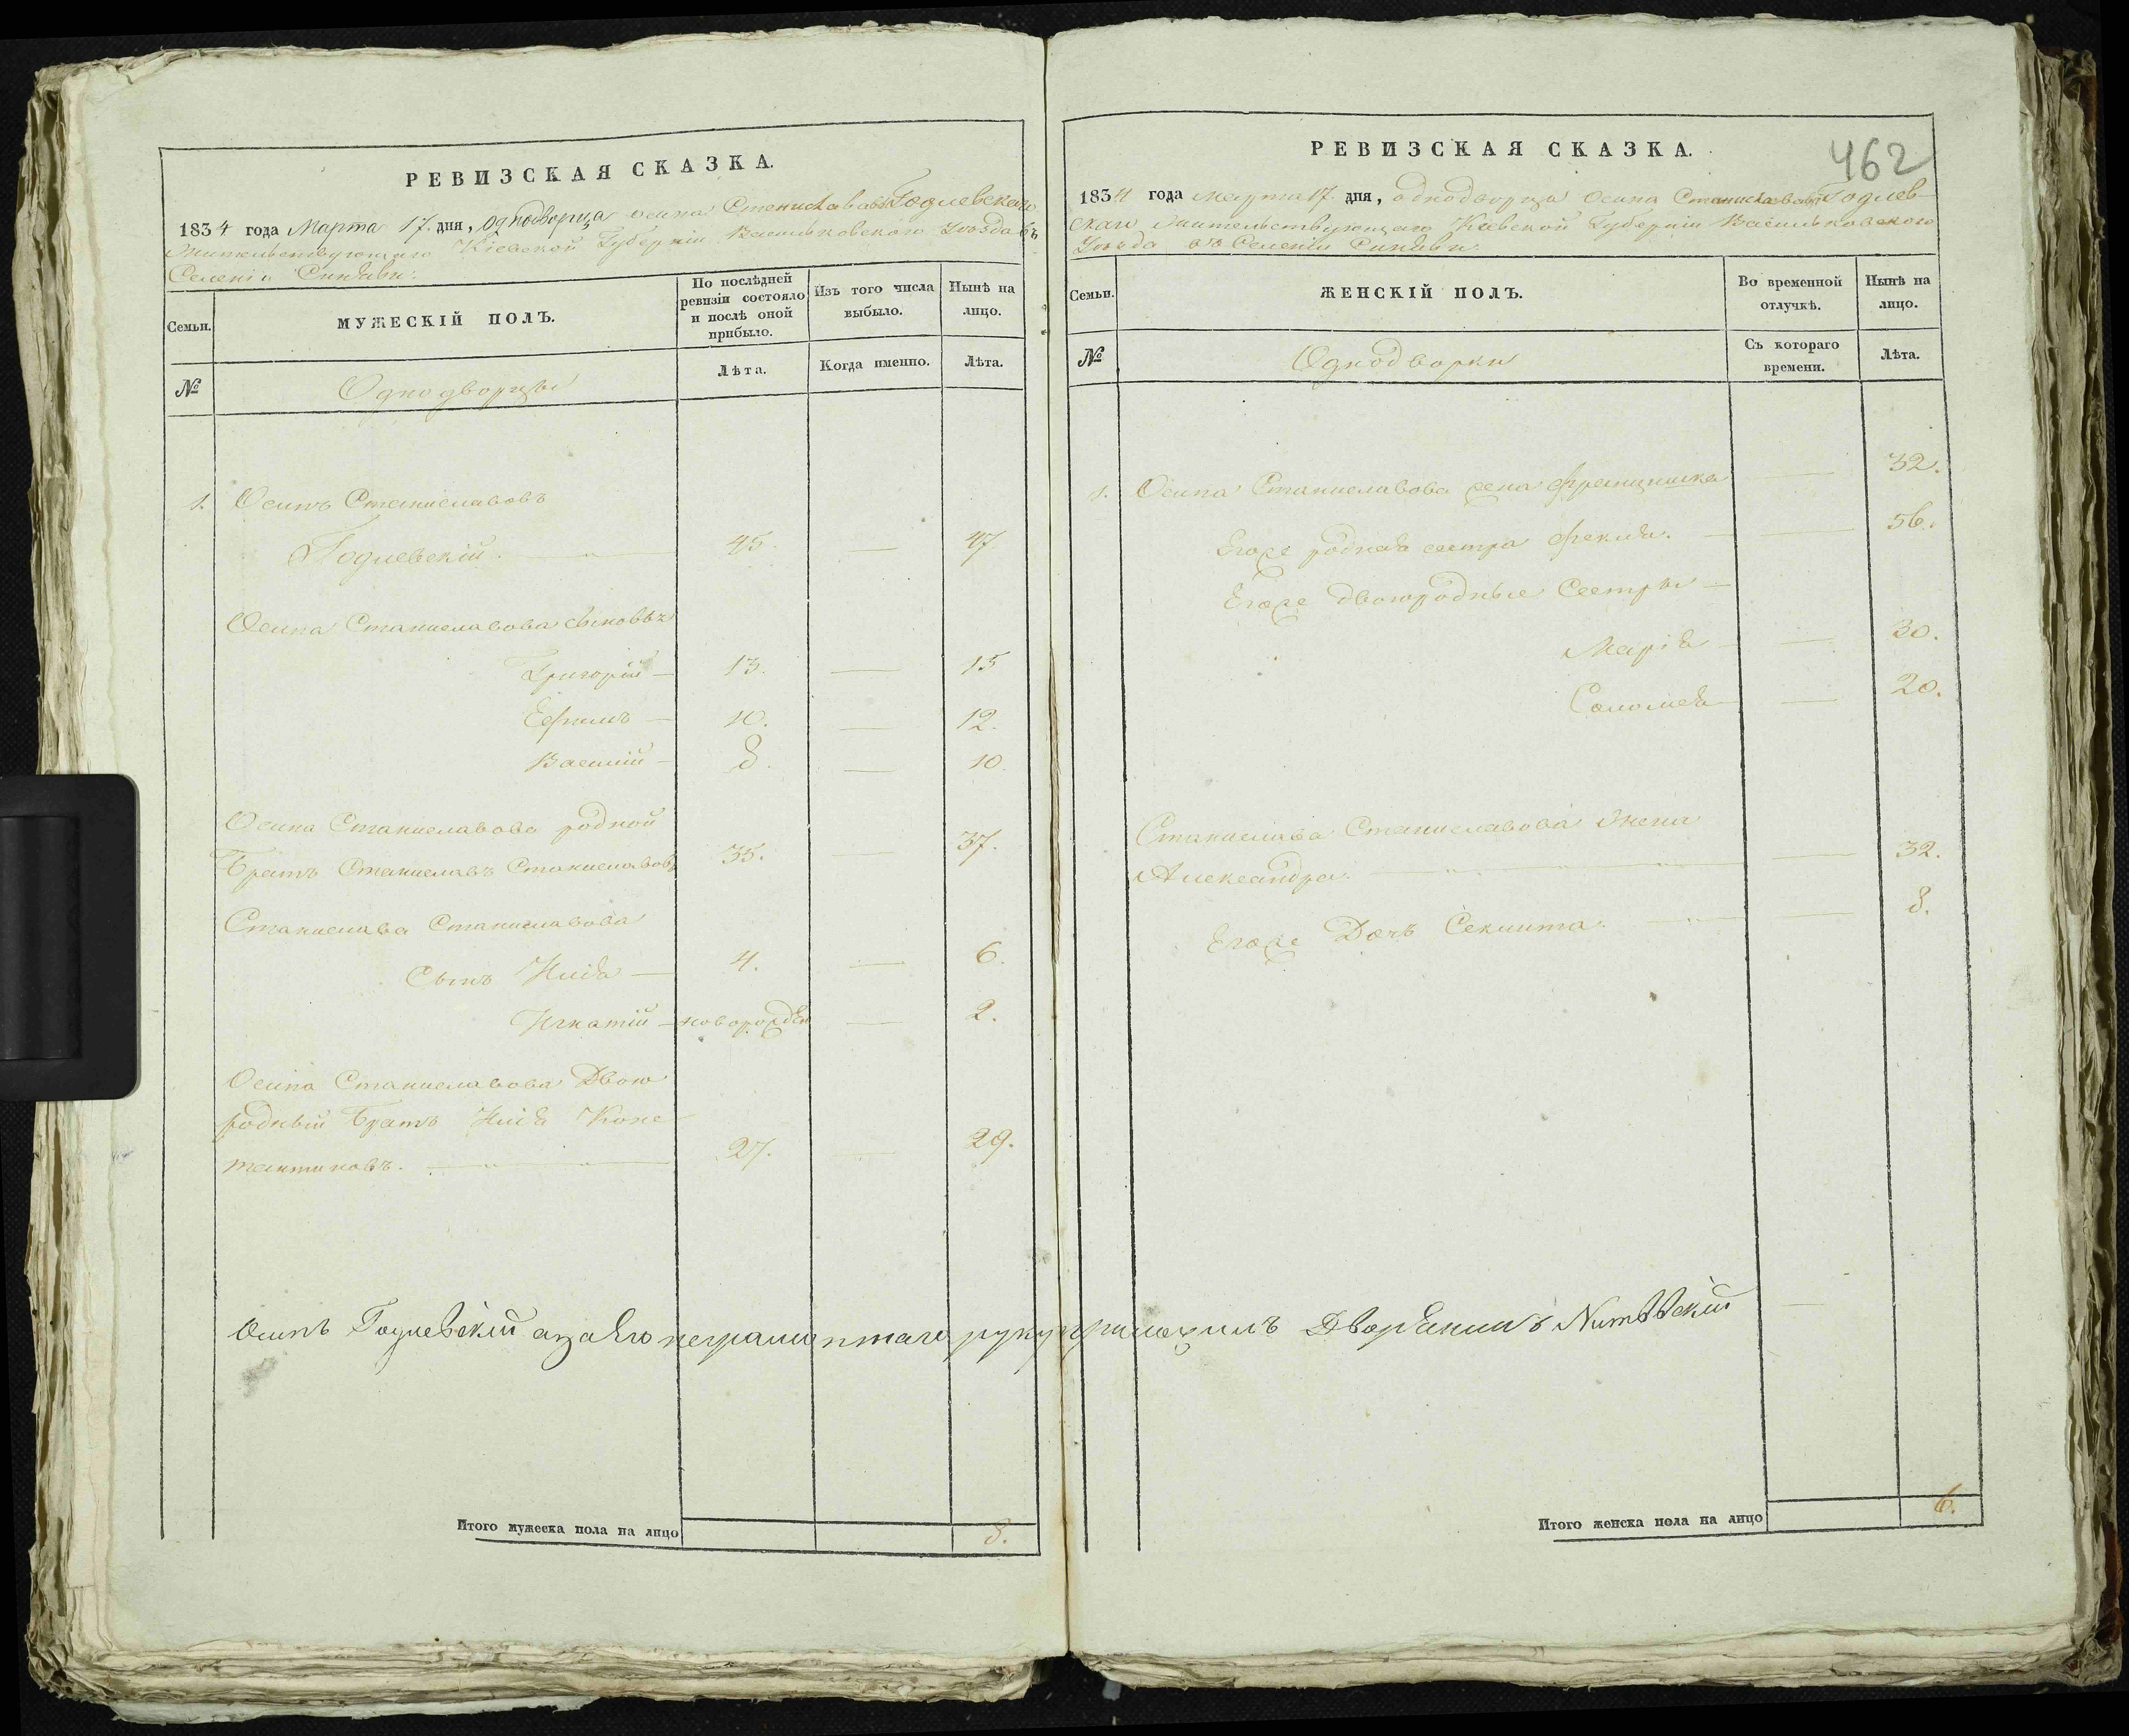 РЕВИЗСКАЯ СКАЗКА.
1834 года Марта 17. дня, однодворца Осипа Станиславова Годлевскаго
Жительствующаго Кіевской Губерніи Васильковского Уезда въ
Селеніи Синяви:
Семьи.
МУЖЕСКІЙ ПОЛЪ.
По послѣдней ревизіи состояло и послѣ оной прибыло.
Изъ того числа выбыло.
Нынѣ на лицо.
№
Однодворцы
Лѣта.
Когда именно.
Лѣта.
1. Осипъ Станиславовъ
Годлевскій. 45. — 47
Осипа Станиславова сыновья
Григорій — 13. — 15
Ефимъ — 10. — 12.
Василій — 8. — 10
Осипа Станиславова родной
Братъ Станиславъ Станиславовъ 35. — 37.
Станислава Станиславова
Сынъ Илія — 4. — 6.
Игнатій — новорожден — 2.
Осипа Станиславова Двою
родный Братъ Илія Конс
тантиновъ. 27. — 29.
Итого мужеска пола на лицо 8.
РЕВИЗСКАЯ СКАЗКА.
462
1834 года Марта 17. дня, однодворца Осипа Станиславова Годлев
скаго Жительствующаго Кіевской Губерніи Васильковского
Уезда въ Селеніи Синяви:
Семьи.
ЖЕНСКІЙ ПОЛЪ.
Во временной отлучкѣ.
Нынѣ на лицо.
№
Однодворки
Съ котораго времени.
Лѣта.
1. Осипа Станиславова жена Францишка — 32.
Егоже родная сестра Фекла. — 56.
Егоже Двоюродные Сестры —
Марія — 30.
Соломея — 20.
Станислава Станиславова Жена
Александра. — 32.
Егоже Дочь Секлита. — 8.
Осипъ Годлевскій азаего неграмотнаго руку приложилъ Дворянинъ
Итого женска пола на лицо 6.